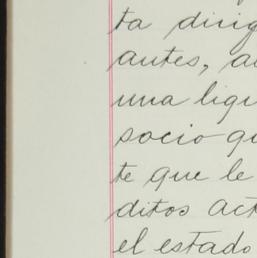 ta dirig
antes, a
una liqu
socio qu
te que le
ditos act
el estado